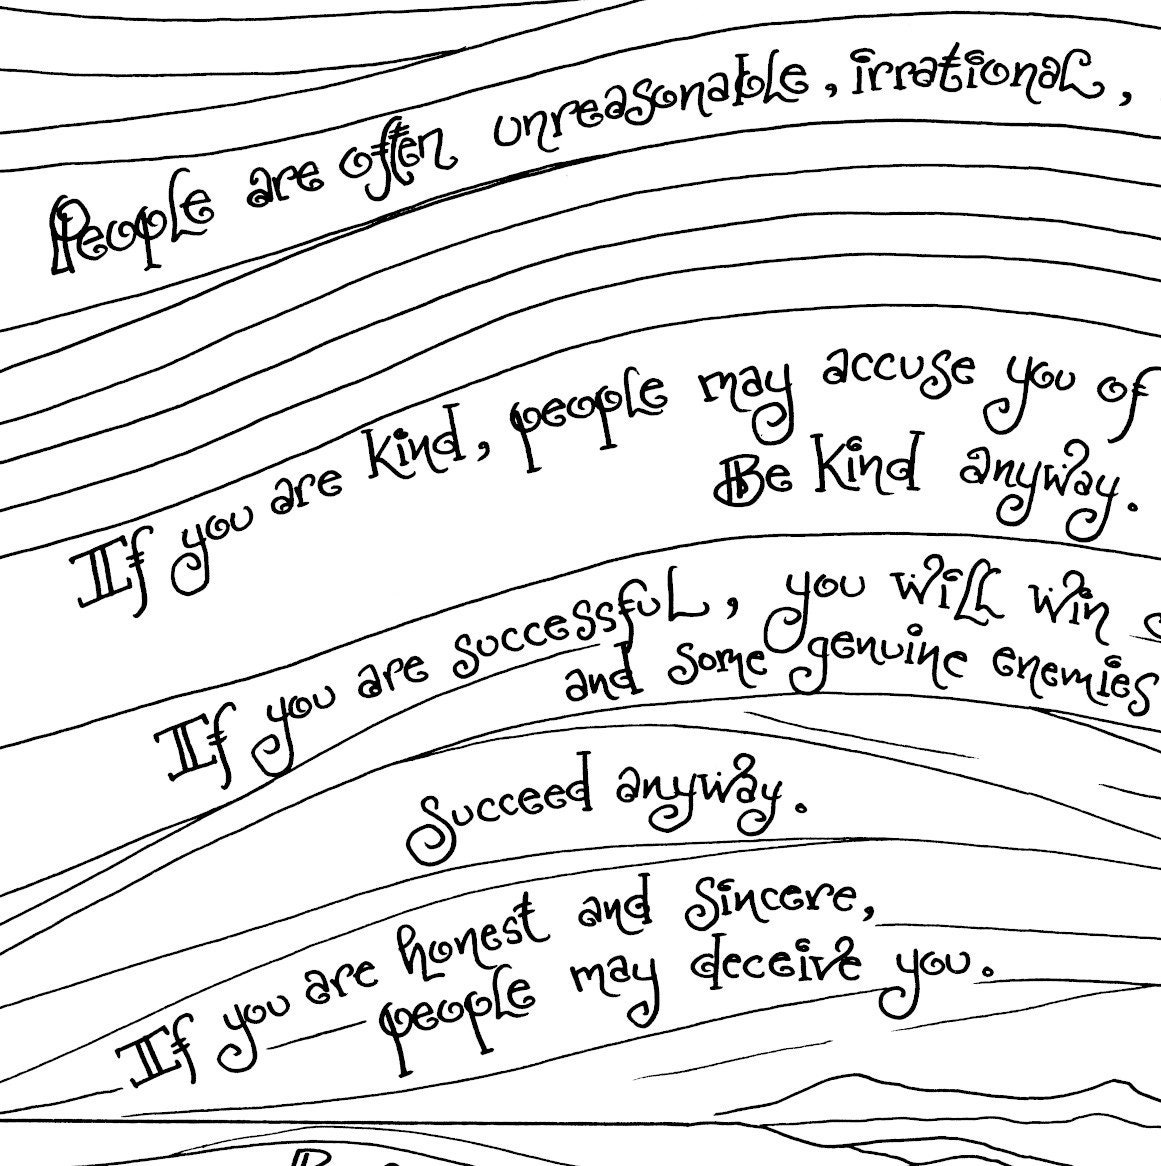 People are often unreasonable, irrational,
If you are kind, people may accuse you of
Be kind anyway.
If you are successful, you will win
and some genuine enemies
Succeed anyway.
If you are honest and sincere,
people may deceive you.